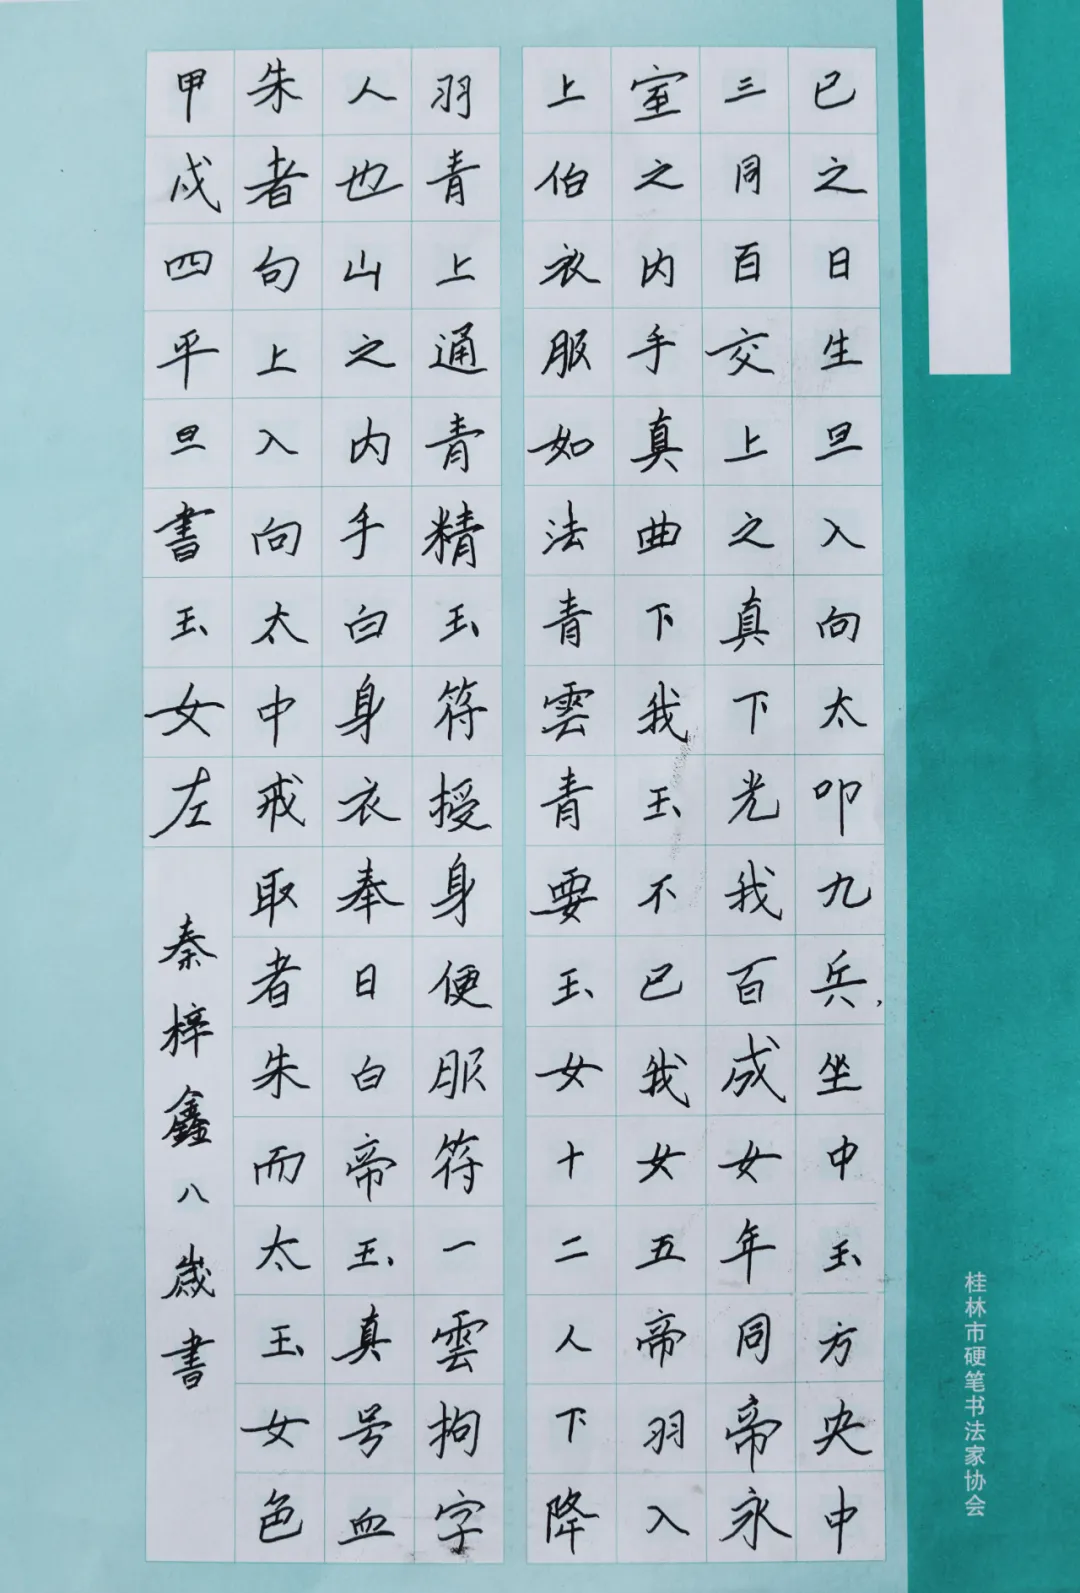 已之日生旦入向太叩九兵坐中玉方央中
三同百交上之真下光我百成女年同帝永
室之内手真曲下我玉不已我女五帝羽入
上伯衣服如法青雲青要玉女十二人下降
羽青上通青精玉符授身便服符一雲拘字
人也山之内手白身衣奉日白帝玉真号血
朱者句上入向太中戒取者朱而太玉女色
甲戌四平旦書玉女左
秦梓鑫八歲書
桂林市硬笔书法家协会